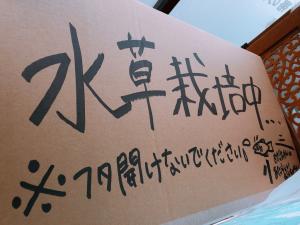 水草栽培中...
※フタ開けないでください。